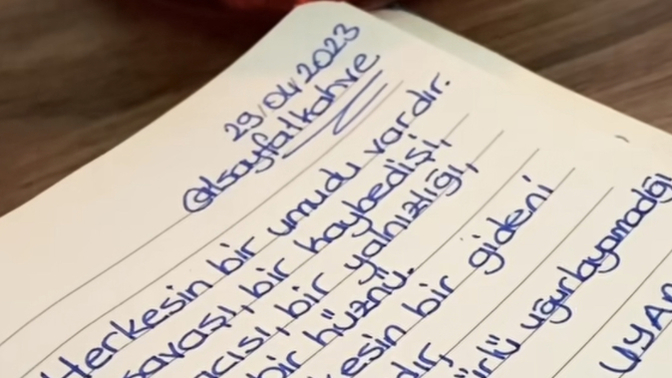 29/04/2023
@1sayfa1kahve
Herkesin bir umudu vardır.
savaşı, bir kaybedişi,
acısı, bir yalnızlığı,
bir hüznü.
kesin bir gideni
dır,
türlü uğurlayamadığı
UYAR